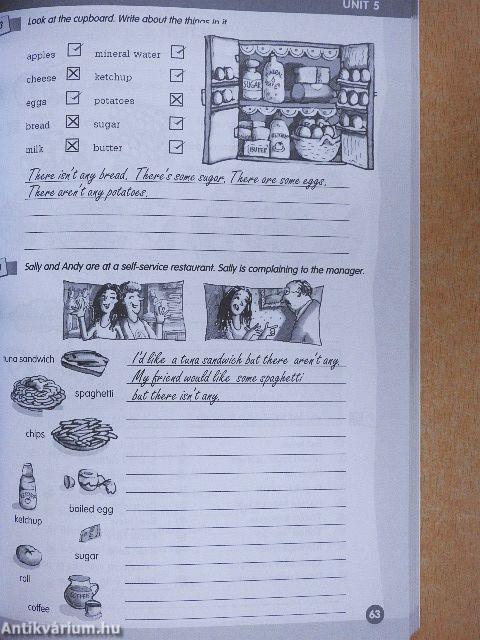 UNIT 5
3 Look at the cupboard. Write about the things in it
apples mineral water
cheese ketchup
eggs potatoes
bread sugar
milk butter
SUGAR
MINERAL WATER
BUTTER
There isn't any bread. There's some sugar. There are some eggs.
There aren't any potatoes.
Sally and Andy are at a self-service restaurant. Sally is complaining to the manager.
tuna sandwich
I'd like a tuna sandwich but there aren't any.
My friend would like some spaghetti
spaghetti
but there isn't any.
chips
boiled egg
ketchup
sugar
roll
coffee
COFFEE
63
Antikvárium.hu